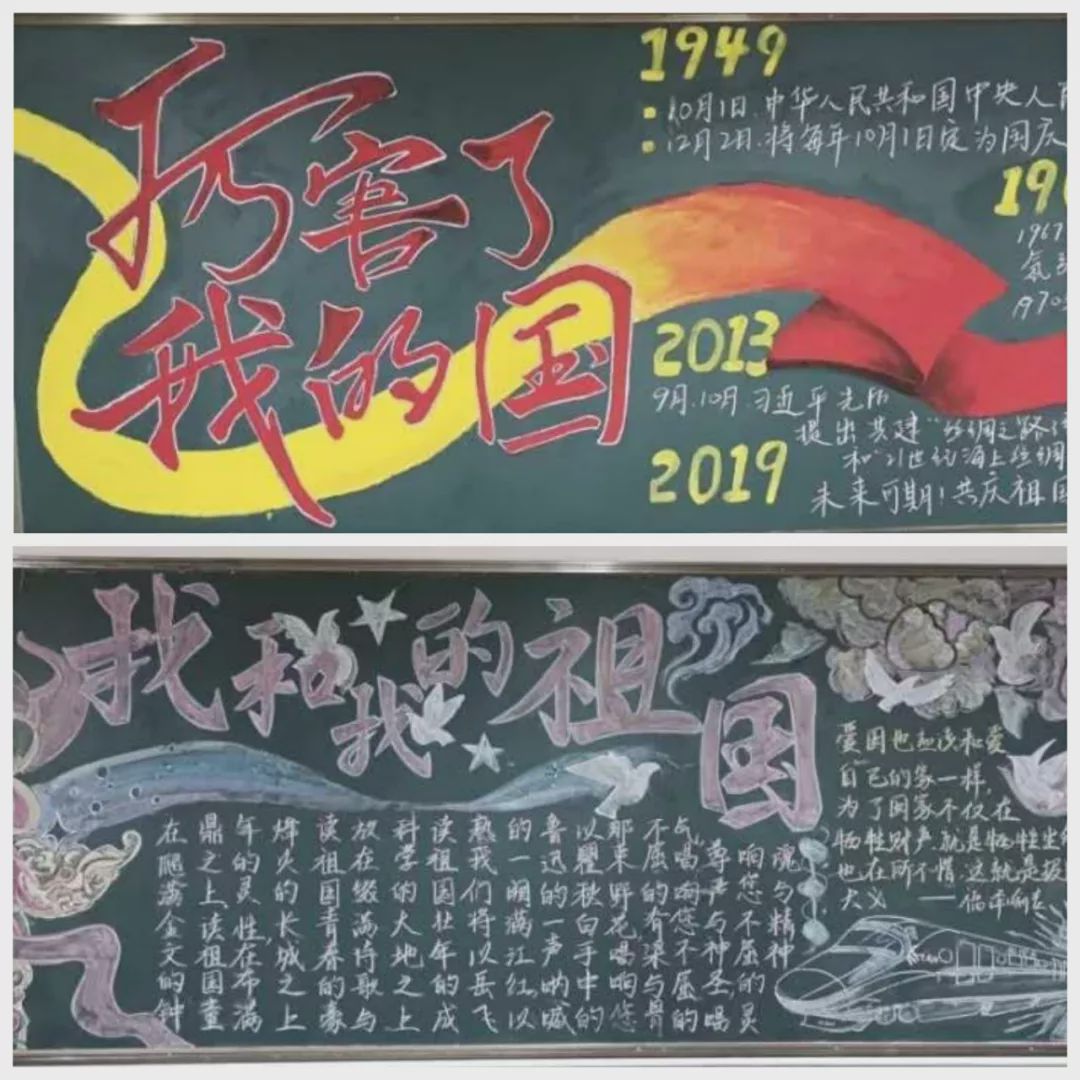 厉害了
我的国
1949
10月1日.中华人民共和国中央人
12月2日.将每年10月1日定为国庆
19
1967
氢
1970
2013
9月.10月.习近平先后
提出共建"丝绸之路
和"21世纪海上丝绸
2019
未来可期!共庆祖国
我和我的祖国
在爬满金文的钟
鼎之上,读祖国童
年的灵性,在布满
烽火的长城之上
读祖国青春的豪
放在缀满诗歌与
科学的大地之上
读祖国壮年的成
熟我们将以岳飞
的一阕满江红,以
鲁迅的一声呐喊
以瞿秋白手中的
那束野花,唱响您
不屈的有梁与骨
气,唱响您不屈的
尊严与神圣,唱
响您不屈的灵
魂与精神
爱国也应该和爱
自己的家一样,
为了国家不仅在
牺牲财产,就是牺牲生
也在所不惜.这就是报
大义